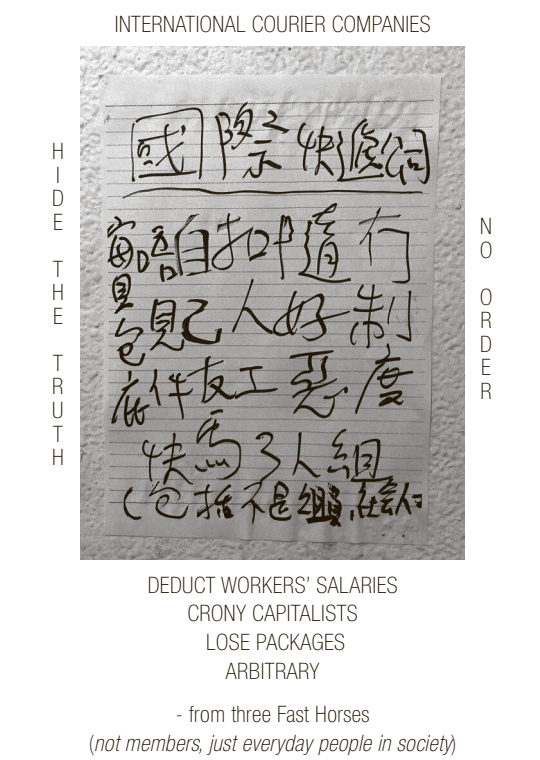 INTERNATIONAL COURIER COMPANIES
HIDE THE TRUTH
國際快遞公司
冇制度
隨好惡
扣人工
自己友
唔見件
包庇
快馬3人組
(包括不是組員社會人士
NO ORDER
DEDUCT WORKERS’ SALARIES
CRONY CAPITALISTS
LOSE PACKAGES
ARBITRARY
- from three Fast Horses
(not members, just everyday people in society)